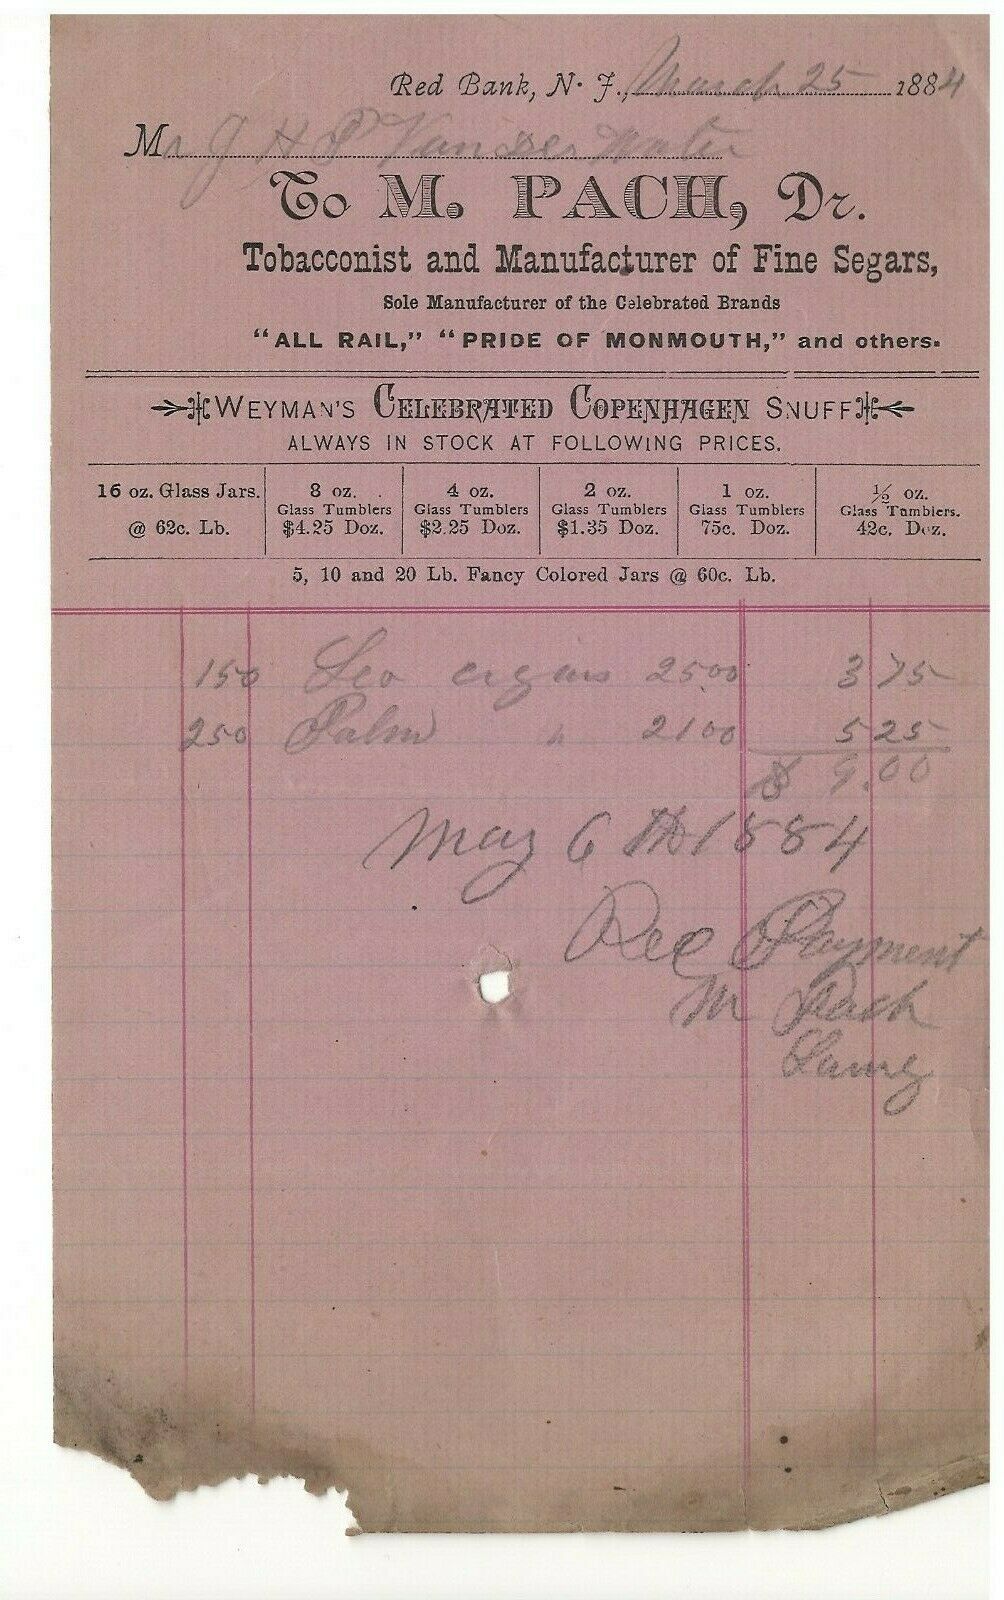 Red Bank, N. J., March 25 1884
Mr J H P Van Der Water
To M. PACH, Dr.
Tobacconist and Manufacturer of Fine Segars,
Sole Manufacturer of the Celebrated Brands
"ALL RAIL," "PRIDE OF MONMOUTH," and others.
WEYMAN'S CELEBRATED COPENHAGEN SNUFF
ALWAYS IN STOCK AT FOLLOWING PRICES.
16 oz. Glass Jars. @ 62c. Lb.
8 oz. Glass Tumblers $4.25 Doz.
4 oz. Glass Tumblers $2.25 Doz.
2 oz. Glass Tumblers $1.35 Doz.
1 oz. Glass Tumblers 75c. Doz.
½ oz. Glass Tumblers. 42c. Doz.
5, 10 and 20 Lb. Fancy Colored Jars @ 60c. Lb.
150 Leo cigars 25.00 3 75
250 Palm " 2100 5 25
$ 9.00
May 6 th 1884
Rec Payment
M Pach